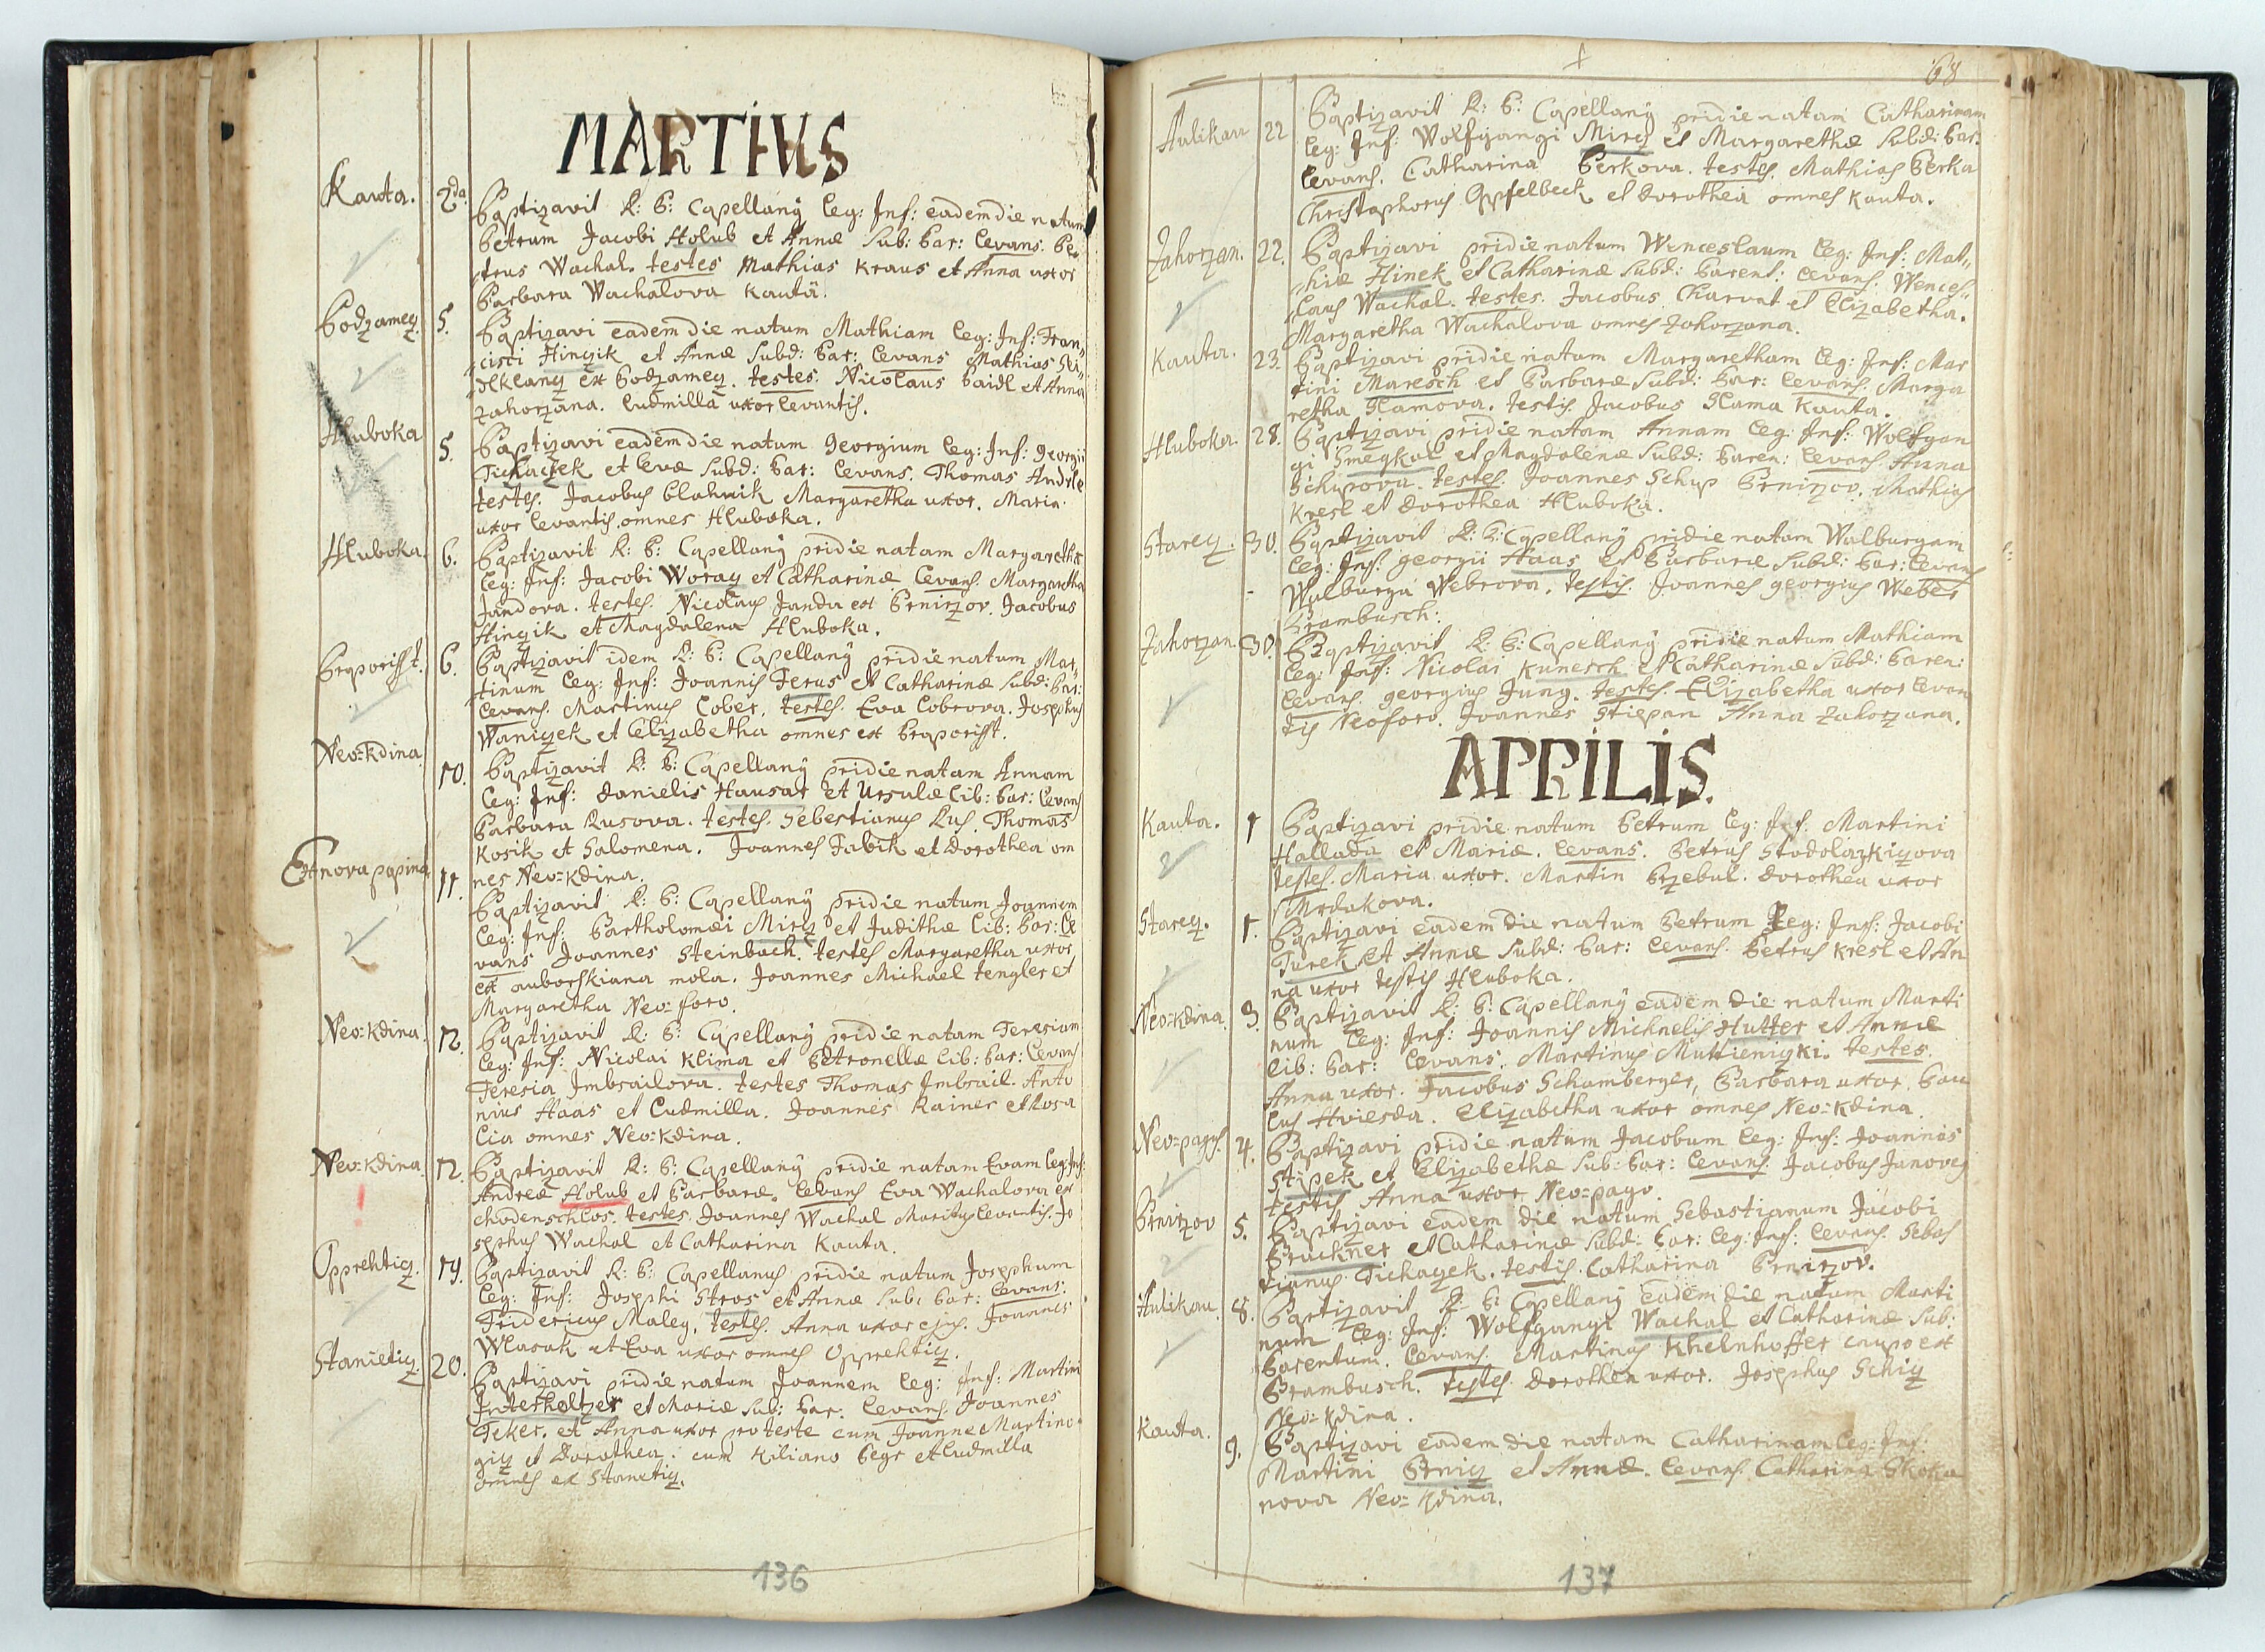 MARTIUS
Kauta. 2da. Baptizavit R: P: Capellanÿ leg: Inf: eadem die natum
Petrum Jacobi Holub et Annæ Sub: Par: levans. Pe„
„trus Wachal. testes Mathias Kraus et Anna uxor
Barbara Wachalova Kauta.
Podzamecz. 5. Baptizavi eadem die natum Mathiam leg: Inf: Fran„
„cisci Hinczik et Annæ Subd: Par: levans Mathias
ex Podzamecz. testes. Nicolaus Paidl et Anna
Zahorzana. Ludmilla uxor levantis.
Hluboka 5. Baptizavi eadem die natum Georgium leg: Inf: Georgii
Tichaczek et Evæ Subd: Par: levans. Thomas Andrle
testes. Jacobus Blahnik Margaretha uxor. Maria
uxor levantis. omnes Hluboka.
Hluboka. 6. Baptizavit R: P: Capellanÿ pridie natam Margaretha
leg: Inf: Jacobi Woracz et Catharinæ. levans. Margaretha
Jandova. testes. Nicolaus Janda ex Prnirzov. Jacobus
Hinczik et Magdalena Hluboka.
6. Baptizavit idem R: P: Capellanÿ pridie natum Mar„
„tinum leg: Inf: Joannis Ferus et Catharinæ Subd: Par:
levans. Martinus Cober. testes. Eva Cobrova. Josephus
Waniczek et Elizabetha omnes ex
Neo=Kdina 10. Baptizavit R: P: Capellanÿ pridie natam Annam
leg: Inf: Danielis Hausar et Ursulæ lib: Par: levans
Barbara Rusova. testes. Sebestianus Rus. Thomas
Kosik et Salomena. Joannes Fabik et Dorothea om
nes Neo=Kdina.
Ex nova papirna 11. Baptizavit R: P: Capellanÿ pridie natum Joannem
leg: Inf: Bartholomæi Mirz et Judithæ lib: Par: le
vans Joannes Steinbach. testes Margaretha uxor
ex auborskiana mola. Joannes Michael Tengler et
Margaretha Neo=foro.
Neo=Kdina. 12. Baptizavit R: P: Capellanÿ pridie natam Teresiam
leg: Inf: Nicolai Klima et Petronellæ lib: Par: levans
Teresia Imbrailova. testes Thomas Imbrail. Anto
nius Haas et Ludmilla. Joannes Rainer et Rosa
lia omnes Neo=Kdina.
Neo=Kdina. 12. Baptizavit R: P: Capellanÿ pridie natam Evam leg: Inf:
Andreæ Holub et Barbaræ. levans Eva Wachalova ex
chodenschlos. testes. Joannes Wachal Maritus levantis. Jo
sephus Wachal et Catharina Kauta.
Opprehticz. 19. Baptizavit R: P: Capellanus pridie natum Josephum
leg: Inf: Josephi Stros et Annæ Sub: Par: levans.
Fridericus Malecz. testes. Anna uxor ejus. Joannes
Wlasak et Eva uxor omnes Opprehticz.
Stanieticz. 20. Baptizavi pridie natum Joannem leg: Inf: Martini
Interholtzer et Mariæ Sub: Par: levans. Joannes
Feker. et Anna uxor pro teste cum Joanne Martino
gicz et Dorothea. cum Kiliano Begr et Ludmilla
omnes ex Stanieticz.
136
68
Aulikau 22 Baptizavit R: P: Capellanÿ pridie natam Catharinam
leg: Inf: Wolfgangi Mirz et Margarethæ Subd: Par.
levans. Catharina Perkova. testes. Mathias Perka
Christophorus Opfelbeck et Dorothea omnes Kauta.
Zahorzan. 22. Baptizavi pridie natum Wenceslaum leg: Inf: Mat„
„hiæ Hinek et Catharinæ Subd: Parent: levans. Wences„
„laus Wachal. testes. Jacobus Charvat et Elizabetha.
Margaretha Wachalova omnes Zahorzana.
Kauta. 23. Baptizavi pridie natam Margaretham leg: Inf: Mar
tini Maresch et Barbaræ Subd: Par: levans. Marga
retha Slamova. testis Jacobus Slama Kauta.
Hluboka. 28. Baptizavi pridie natam Annam leg: Inf: Wolfgan
gi Smeykal et Magdalenæ Subd: Paren: levans. Anna
Schupova. testes. Joannes Schup Prnirzov. Mathias
Kresl et Dorothea Hluboka.
Starecz. 30. Baptizavit R: P: Capellanÿ pridie natam Walburgam
leg: Inf: Georgii Haas et Barbaræ Subd: Par: levans
Walburga Webrova. testis. Joannes Georgius Weber
Brambusch:
Zahorzan. 30. Baptizavit R: P: Capellanÿ pridie natum Mathiam
leg: Inf: Nicolai Kunesch et Catharinæ Subd: Paren:
levans. Georgius Jung. testes. Elizabetha uxor levan
tis Neoforo. Joannes Stiepan Anna Zahorzana.
APRILIS.
Kauta. 1 Baptizavi pridie natum Petrum leg: Inf. Martini
Hallada et Mariæ. levans. Petrus
testes. Maria uxor. Martin Przebul. Dorothea uxor
Mrdakova.
Starecz. 1. Baptizavi eadem die natum Petrum leg: Inf: Jacobi
Turek et Annæ Subd: Par: levans. Petrus Kresl et An
na uxor testis Hluboka.
Neo=Kdina. 3. Baptizavit R: P: Capellanÿ eadem die natum Marti
num leg: Inf: Joannis Michaelis Hutter et Annæ
lib: Par: levans. Martinus Muttieniczki. testes.
Anna uxor. Jacobus Schamberger, Barbara uxor. Pau
lus Hviesda. Elizabetha uxor omnes Neo=Kdina.
Neo=pagus. 4. Baptizavi pridie natum Jacobum leg: Inf: Joannis
Stipek et Elizabethæ Sub: Par: levans. Jacobus Janovecz
testis Anna uxor Neo=pago.
Prnirzov 5. Baptizavi eadem die natum Sebastianum Jacobi
Bruckner et Catharinæ Subd: Par: leg: Inf: levans. Sebas
tianus Tichaczek. testis. Catharina Prnirzov.
Aulikau 8. Baptizavit R: P: Capellanÿ eadem die natum Marti
num leg: Inf: Wolfgangi Wachal et Catharinæ Sub:
Parentum. levans. Martinus Khelnhoffer caupo ex
Brambusch. testes. Dorothea uxor. Josephus Schicz
Neo=Kdina.
Kauta. 9. Baptizavi eadem die natam Catharinam leg: Inf:
Martini Brnicz et Annæ. levans. Catharina Skoka
nova Neo=Kdina.
137